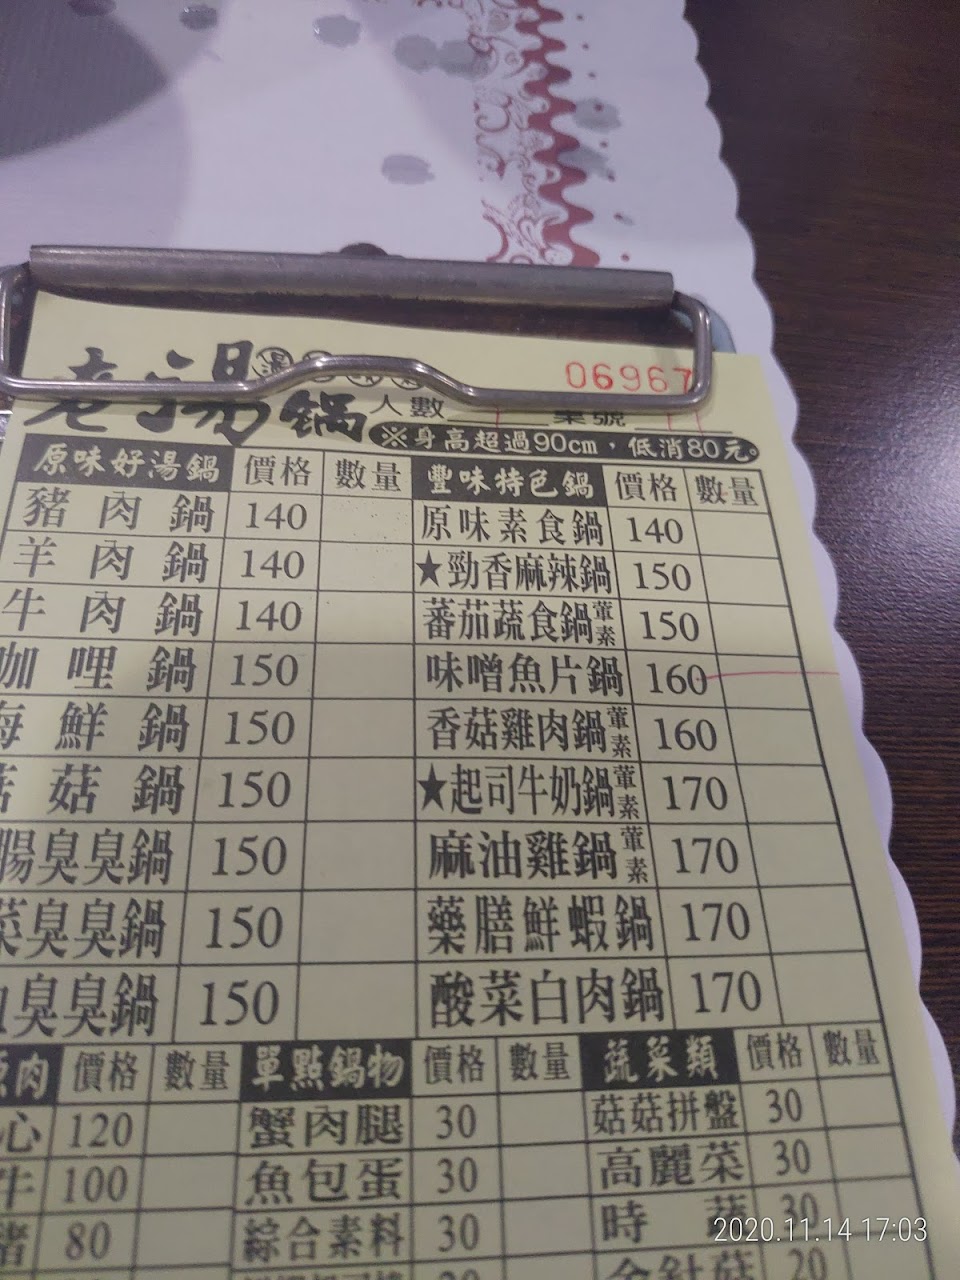 06967
老湯鍋 人數 桌號
※身高超過90cm，低消80元。
原味好湯鍋 價格 數量 豐味特色鍋 價格 數量
豬肉鍋 140 原味素食鍋 140
羊肉鍋 140 ★勁香麻辣鍋 150
牛肉鍋 140 蕃茄蔬食鍋葷素 150
咖哩鍋 150 味噌魚片鍋 160
海鮮鍋 150 香菇雞肉鍋葷素 160
菇菇鍋 150 ★起司牛奶鍋葷素 170
腸臭臭鍋 150 麻油雞鍋葷素 170
菜臭臭鍋 150 藥膳鮮蝦鍋 170
臭臭鍋 150 酸菜白肉鍋 170
肉 價格 數量 單點鍋物 價格 數量 蔬菜類 價格 數量
心 120 蟹肉腿 30 菇菇拼盤 30
牛 100 魚包蛋 30 高麗菜 30
豬 80 綜合素料 30 時蔬 30
金針菇 20
2020.11.14 17:03